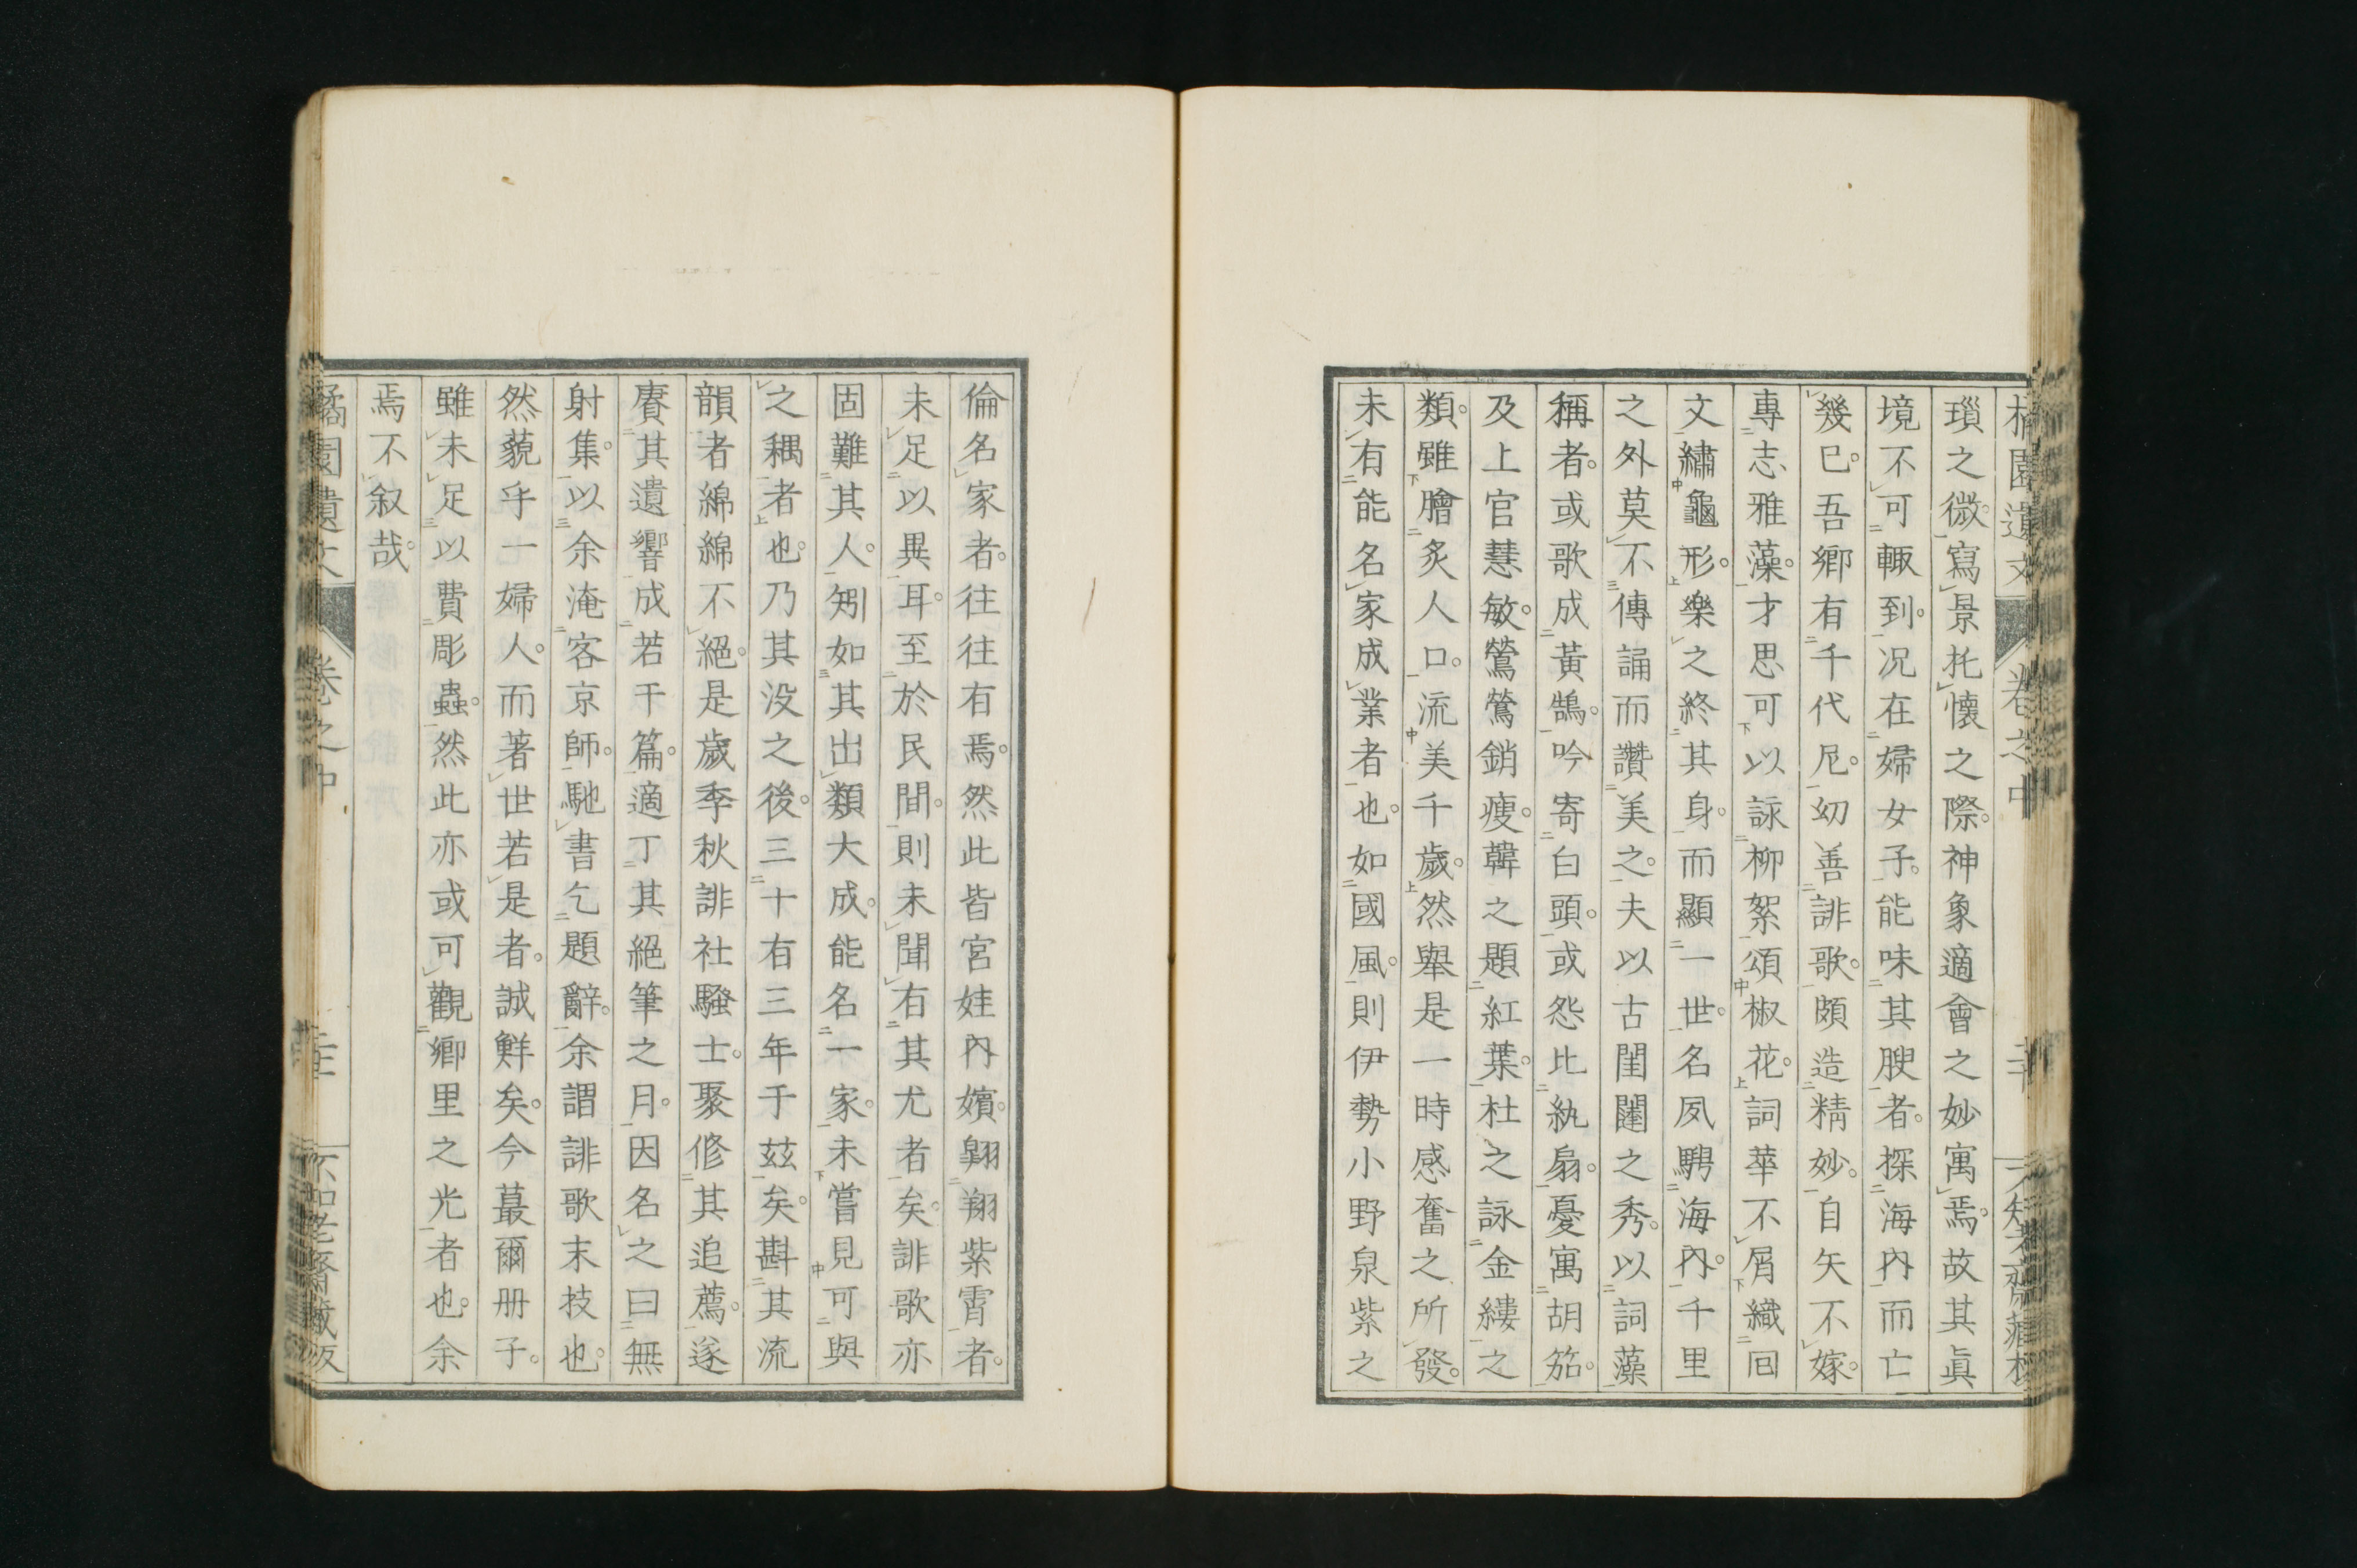 橘園遺文 卷之中
瑣之微。寫景托懷之際。神象適會之妙寓焉。故其眞
境不可輙到。况在婦女子。能味其腴者。探海內而亡
幾巳。吾鄉有千代尼。幼善誹歌。頗造精妙。自矢不嫁。
專志雅藻。才思可以詠柳絮頌椒花。詞華不屑織回
文繡龜形。樂之終其身。而顯一世。名夙騁海內。千里
之外莫不傳誦而讚美之。夫以古閨闥之秀。以詞藻
稱者。或歌成黃鵠。吟寄白頭。或怨比紈扇。憂寓胡笳。
及上官慧敏。鶯鶯銷瘦。韓之題紅葉。杜之詠金縷之
類。雖膾炙人口。流美千歲。然舉是一時感奮之所發。
未有能名家成業者也。如國風。則伊勢小野泉紫之
倫名家者。往往有焉。然此皆宮娃內嬪翱翔紫霄者。
未足以異耳。至於民間。則未聞右其尤者矣。誹歌亦
固難其人。矧如其出類大成。能名一家。未嘗見可與
之耦者也。乃其没之後。三十有三年于玆矣。斟其流
韻者綿綿不絕。是歲季秋誹社騷士。聚修其追薦。遂
賡其遺響成若干篇。適丁其絕筆之月。因名之曰無
射集。以余淹客京師。馳書乞題辭。余謂誹歌末技也。
然藐乎一婦人。而著世若是者。誠鮮矣。今蕞爾册子。
雖未足以費彫蟲。然此亦或可觀鄉里之光者也。余
焉不叙哉。
橘園遺文 卷之中